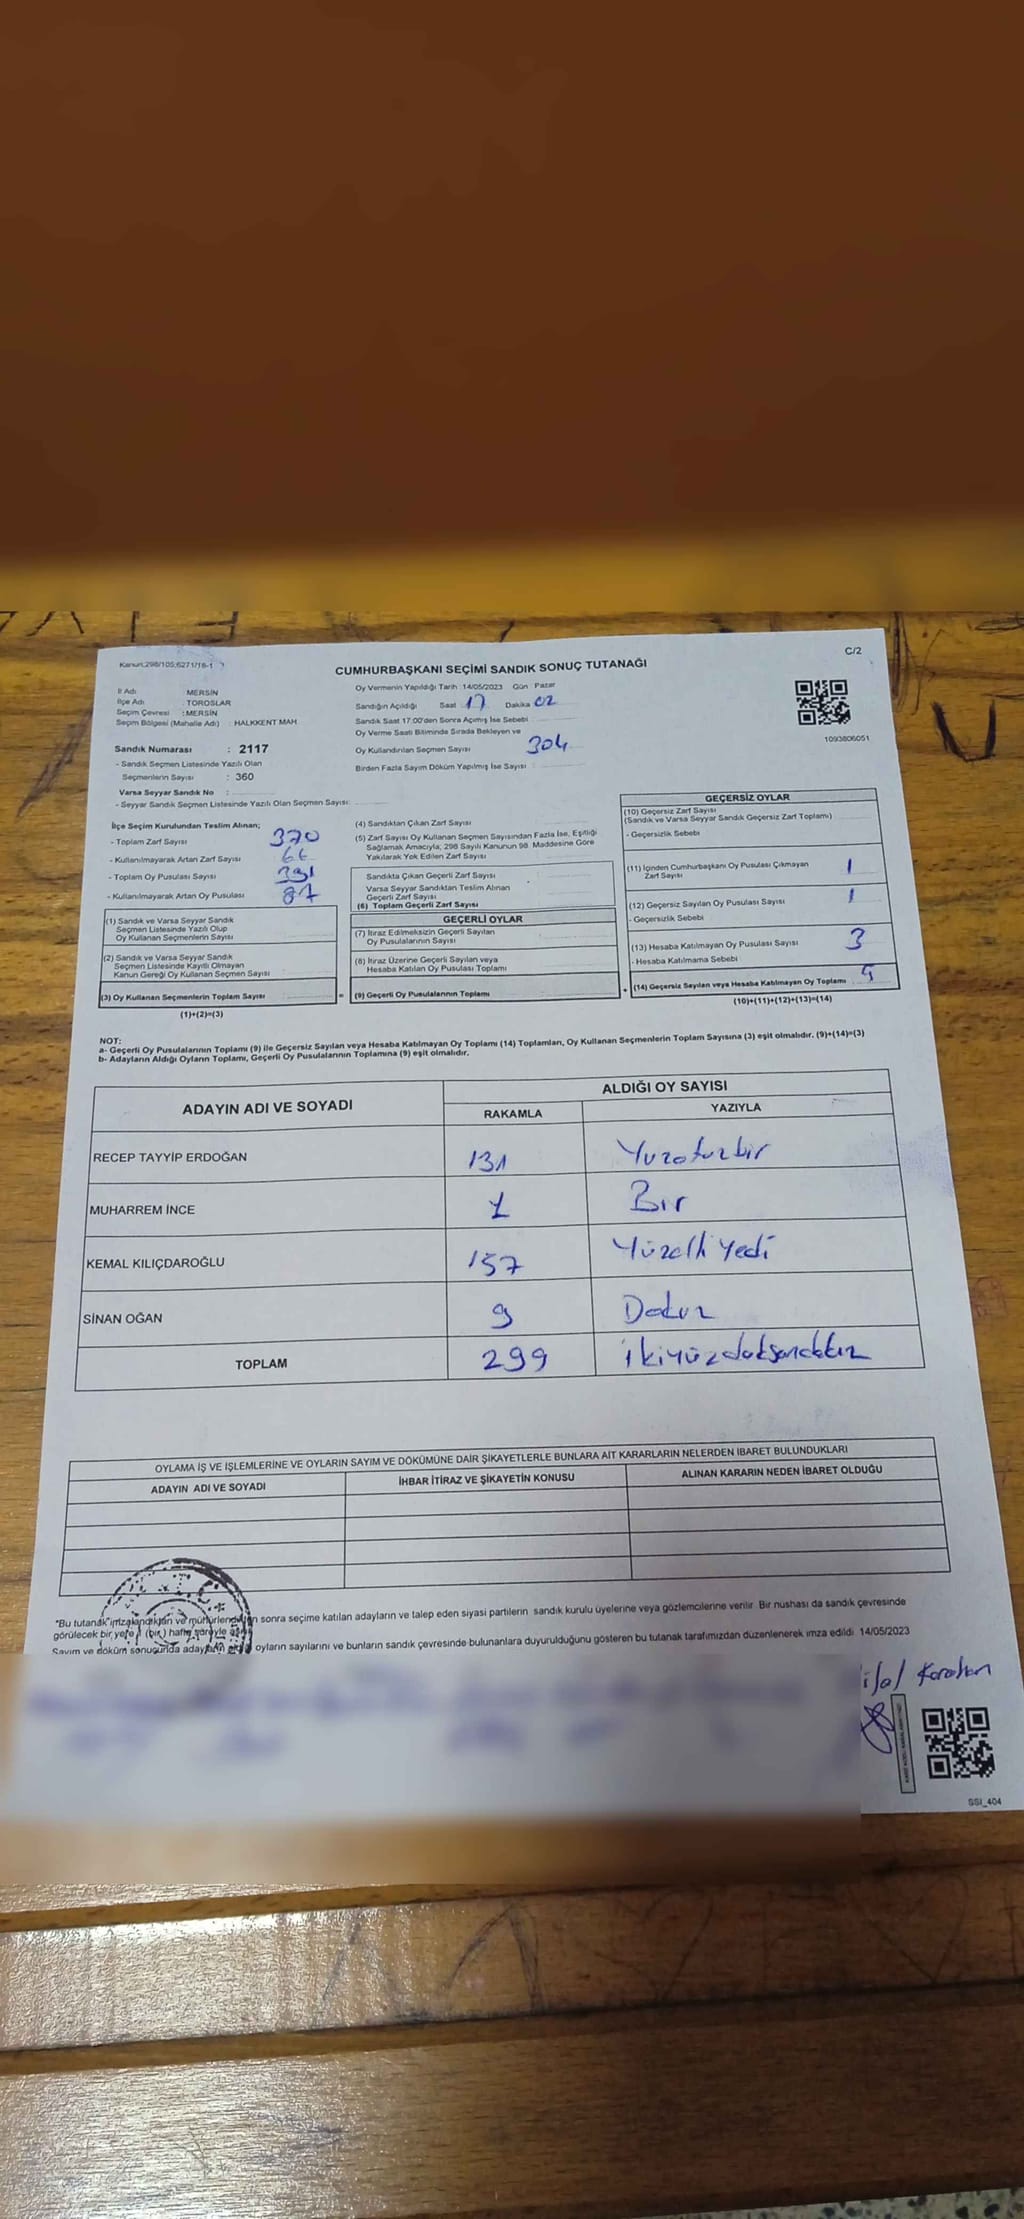 Kanun:298/105;6271/18-1
C/2
CUMHURBAŞKANI SEÇİMİ SANDIK SONUÇ TUTANAĞI
İl Adı : MERSİN
İlçe Adı : TOROSLAR
Seçim Çevresi : MERSİN
Seçim Bölgesi (Mahalle Adı) : HALKKENT MAH
Sandık Numarası : 2117
- Sandık Seçmen Listesinde Yazılı Olan
Seçmenlerin Sayısı : 360
Varsa Seyyar Sandık No :
- Seyyar Sandık Seçmen Listesinde Yazılı Olan Seçmen Sayısı:
Oy Vermenin Yapıldığı Tarih :14/05/2023 Gün Pazar
Sandığın Açıldığı Saat 17 Dakika 02
Sandık Saat 17:00'den Sonra Açımış İse Sebebi
Oy Verme Saati Bitiminde Sırada Bekleyen ve
Oy Kullandırılan Seçmen Sayısı 304
Birden Fazla Sayım Döküm Yapılmış İse Sayısı :
1093806051
İlçe Seçim Kurulundan Teslim Alınan;
- Toplam Zarf Sayısı 370
- Kullanılmayarak Artan Zarf Sayısı 66
- Toplam Oy Pusulası Sayısı 391
- Kullanılmayarak Artan Oy Pusulası 87
(1) Sandık ve Varsa Seyyar Sandık
Seçmen Listesinde Yazılı Olup
Oy Kullanan Seçmenlerin Sayısı
(2) Sandık ve Varsa Seyyar Sandık
Seçmen Listesinde Kayıtlı Olmayan
Kanun Gereği Oy Kullanan Seçmen Sayısı
(3) Oy Kullanan Seçmenlerin Toplam Sayısı
(1)+(2)=(3)
(4) Sandıktan Çıkan Zarf Sayısı
(5) Zarf Sayısı Oy Kullanan Seçmen Sayısından Fazla İse, Eşitliği
Sağlamak Amacıyla; 298 Sayılı Kanunun 98. Maddesine Göre
Yakılarak Yok Edilen Zarf Sayısı
Sandıkta Çıkan Geçerli Zarf Sayısı
Varsa Seyyar Sandıktan Teslim Alınan
Geçerli Zarf Sayısı
(6) Toplam Geçerli Zarf Sayısı
GEÇERLİ OYLAR
(7) İtiraz Edilmeksizin Geçerli Sayılan
Oy Pusulalarının Sayısı
(8) İtiraz Üzerine Geçerli Sayılan veya
Hesaba Katılan Oy Pusulası Toplamı
= (9) Geçerli Oy Pusulalarının Toplamı
GEÇERSİZ OYLAR
(10) Geçersiz Zarf Sayısı
(Sandık ve Varsa Seyyar Sandık Geçersiz Zarf Toplamı)
- Geçersizlik Sebebi
(11) İçinden Cumhurbaşkanı Oy Pusulası Çıkmayan
Zarf Sayısı 1
(12) Geçersiz Sayılan Oy Pusulası Sayısı 1
- Geçersizlik Sebebi
(13) Hesaba Katılmayan Oy Pusulası Sayısı 3
- Hesaba Katılmama Sebebi
+ (14) Geçersiz Sayılan veya Hesaba Katılmayan Oy Toplamı
(10)+(11)+(12)+(13)=(14)
NOT:
a- Geçerli Oy Pusulalarının Toplamı (9) ile Geçersiz Sayılan veya Hesaba Katılmayan Oy Toplamı (14) Toplamları, Oy Kullanan Seçmenlerin Toplam Sayısına (3) eşit olmalıdır. (9)+(14)=(3)
b- Adayların Aldığı Oyların Toplamı, Geçerli Oy Pusulalarının Toplamına (9) eşit olmalıdır.
ADAYIN ADI VE SOYADI
ALDIĞI OY SAYISI
RAKAMLA YAZIYLA
RECEP TAYYİP ERDOĞAN 131 Yuzotuzbir
MUHARREM İNCE 1 Bır
KEMAL KILIÇDAROĞLU 157 Yüzelli yedi
SİNAN OĞAN 9 Dokuz
TOPLAM 299 ikiyüzdoksandokuz
OYLAMA İŞ VE İŞLEMLERİNE VE OYLARIN SAYIM VE DÖKÜMÜNE DAİR ŞİKAYETLERLE BUNLARA AİT KARARLARIN NELERDEN İBARET BULUNDUKLARI
ADAYIN ADI VE SOYADI İHBAR İTİRAZ VE ŞİKAYETİN KONUSU ALINAN KARARIN NEDEN İBARET OLDUĞU
"Bu tutanak imzalandıktan ve mühürlendikten sonra seçime katılan adayların ve talep eden siyasi partilerin sandık kurulu üyelerine veya gözlemcilerine verilir. Bir nushası da sandık çevresinde
görülecek bir yere 1 (bir) hafta süreyle
Sayım ve döküm sonucunda adayların oyların sayılarını ve bunların sandık çevresinde bulunanlara duyurulduğunu gösteren bu tutanak tarafımızdan düzenlenerek imza edildi. 14/05/2023
SSI_404